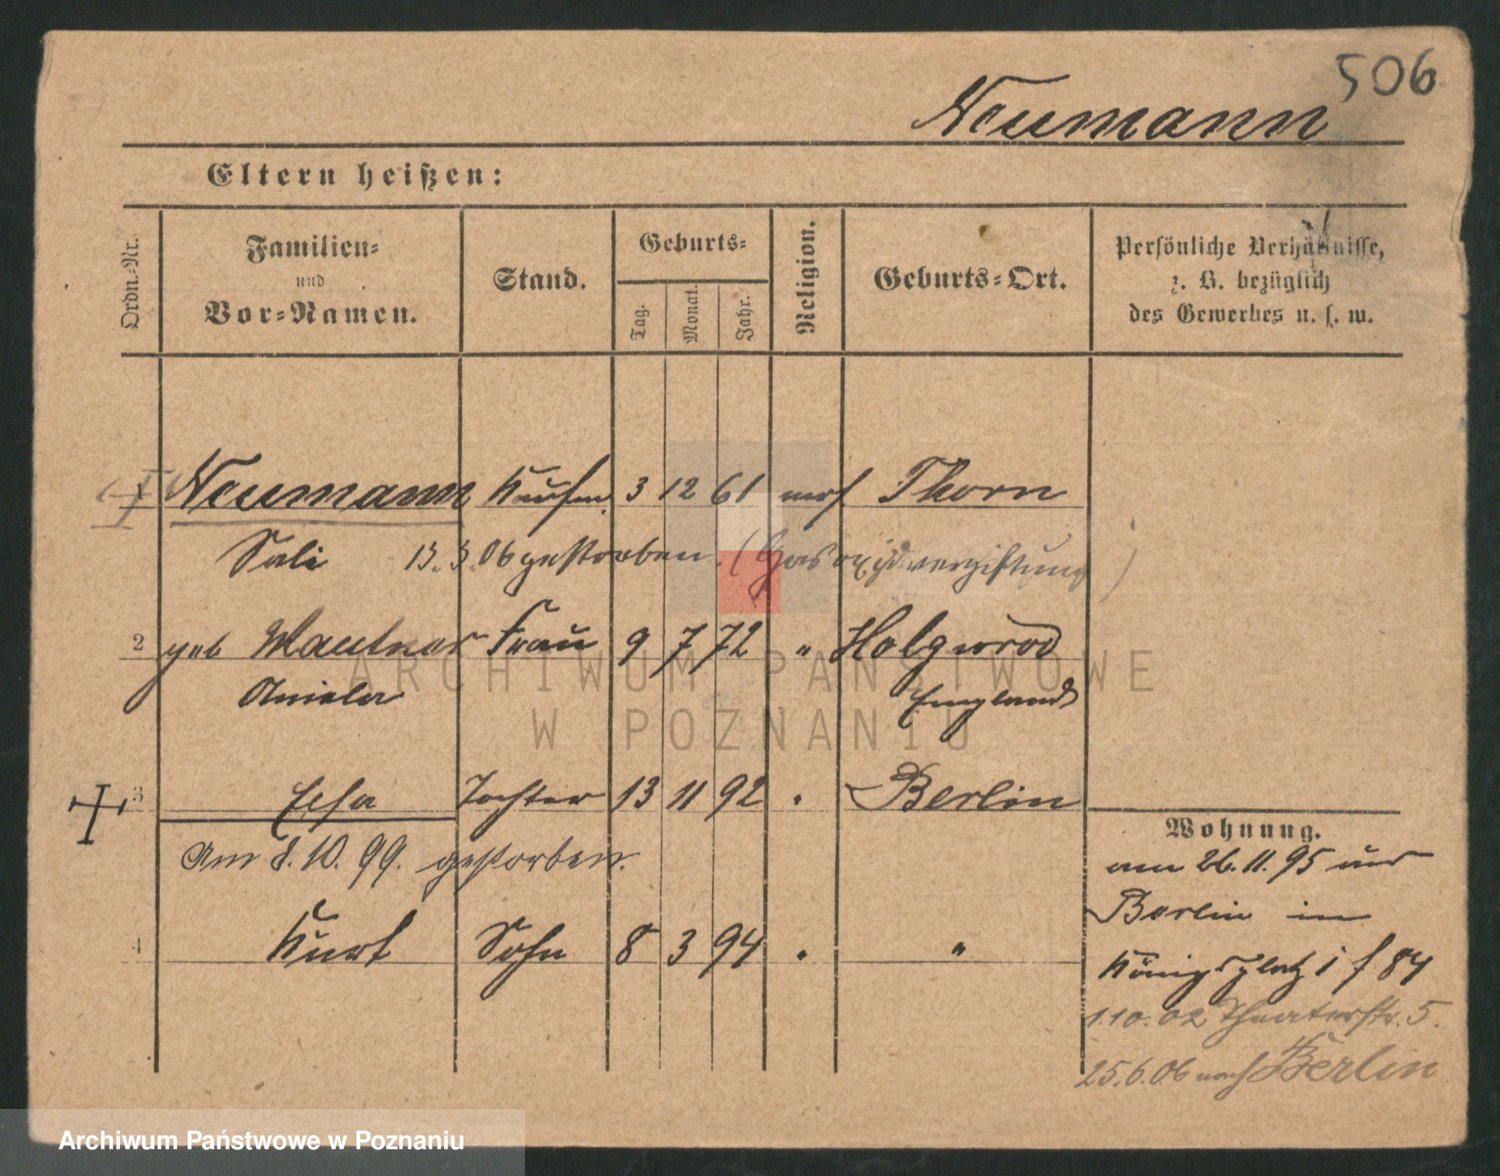 506
Neumann
Eltern heißen:
Ordn.-Nr.
Familien-
und
Vor-Namen.
Stand.
Geburts-
Tag.
Monat.
Jahr.
Religion.
Geburts-Ort.
Persönliche Verhältnisse,
z. B. bezüglich
des Gewerbes u. s. w.
1 Neumann Kaufm. 3 12 61 mos Thorn
Sali 13. 3. 06 gestorben. (Gasoxydvergiftung)
2 geb Frau 9 7 72 "
England
3 Tochter 13 11 92 " Berlin
Am 8. 10. 99. gestorben.
4 Kurt Sohn 8 3 94 " "
Wohnung.
am 26. 11. 95 aus
Berlin in
Königsplatz
1.10.02 Theaterstr. 5.
25.6.06 nach Berlin
ARCHIWUM PAŃSTWOWE
W POZNANIU
Archiwum Państwowe w Poznaniu